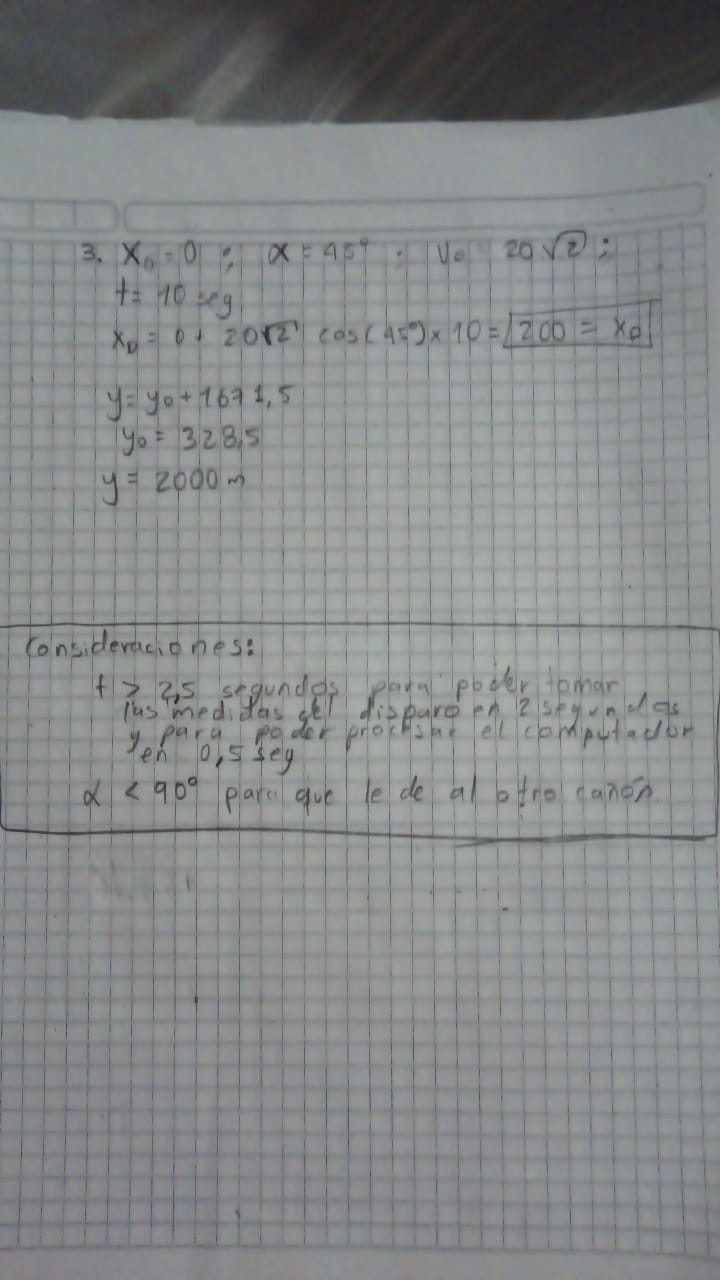 3. X₀ = 0 ; α = 45° ; V₀ 20√2 ;
t = 10 seg
X_D = 0 + 20√2 cos(45°) x 10 = 200 = X_D
y = y₀ + 1671,5
y₀ = 328,5
y = 2000 m
Consideraciones:
t > 2,5 segundos para poder tomar
las medidas del disparo en 2 segundos
y para poder procesar el computador
en 0,5 seg
α < 90° para que le de al otro cañón.